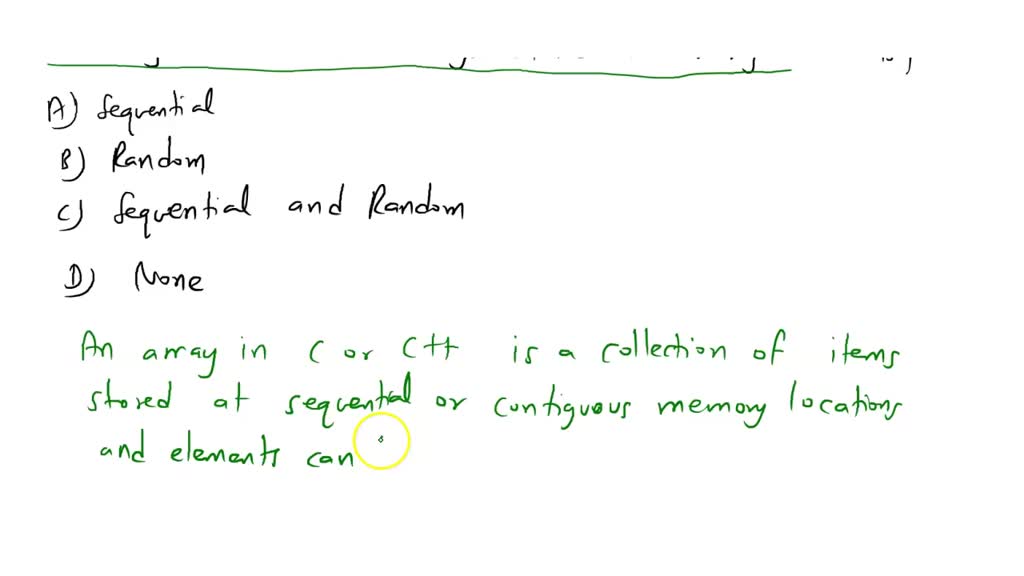 A) Sequential
B) Random
C) Sequential and Random
D) None
An array in C or C++ is a collection of items
stored at sequential or contiguous memory locations
and elements can